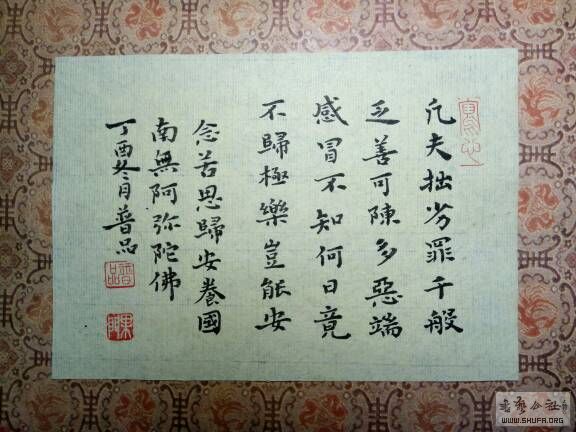 凡夫拙劣罪千般
乏善可陳多惡端
感冒不知何日竟
不歸極樂豈能安
念苦思歸安養國
南無阿弥陀佛
丁酉冬月普品
普品
WWW.SHUFA.ORG